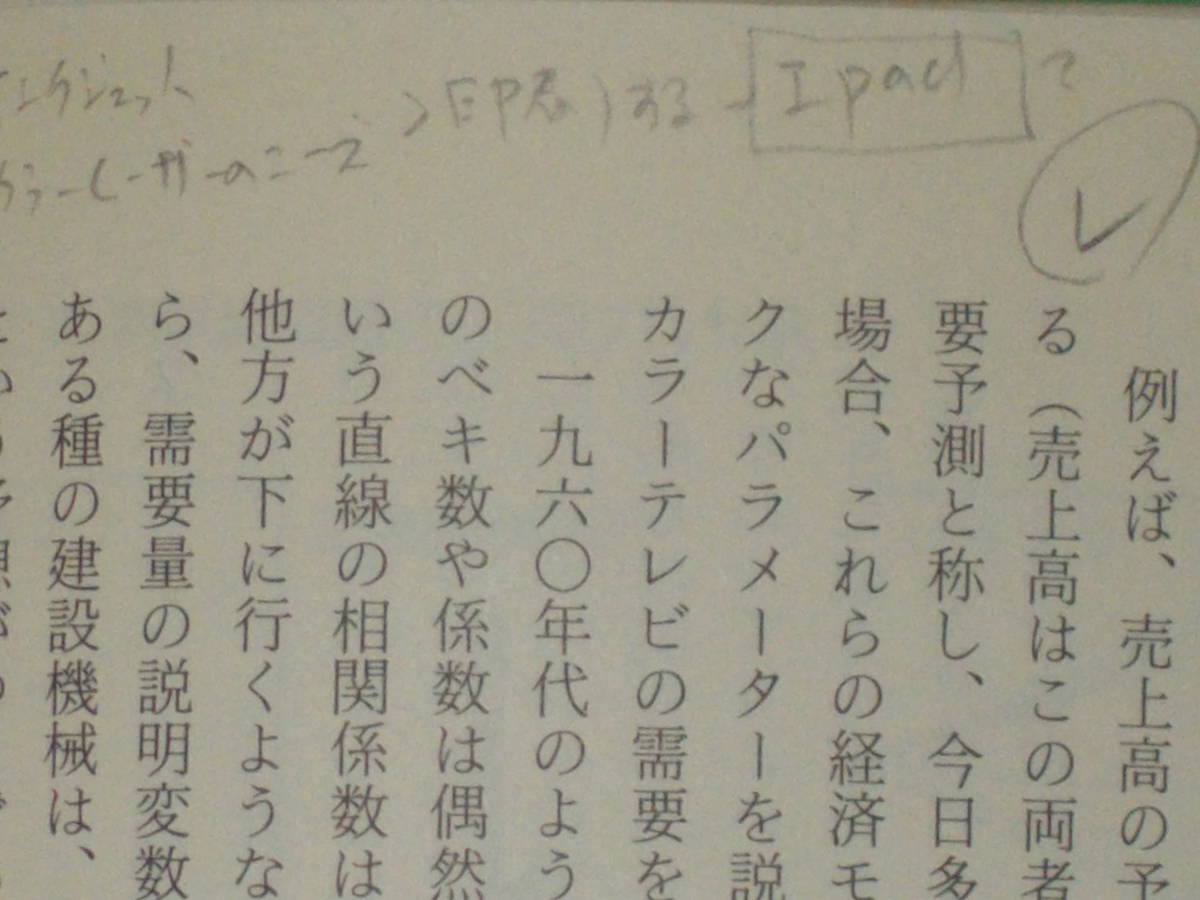 インクジェット
カラーレーザーのニーズ
>印刷する→Ipadで
レ
例えば、売上高の予
る（売上高はこの両者
要予測と称し、今日多
場合、これらの経済モ
クなパラメーターを説
カラーテレビの需要を
一九六〇年代のよう
のベキ数や係数は偶然
いう直線の相関係数は
他方が下に行くような
ら、需要量の説明変数
ある種の建設機械は、